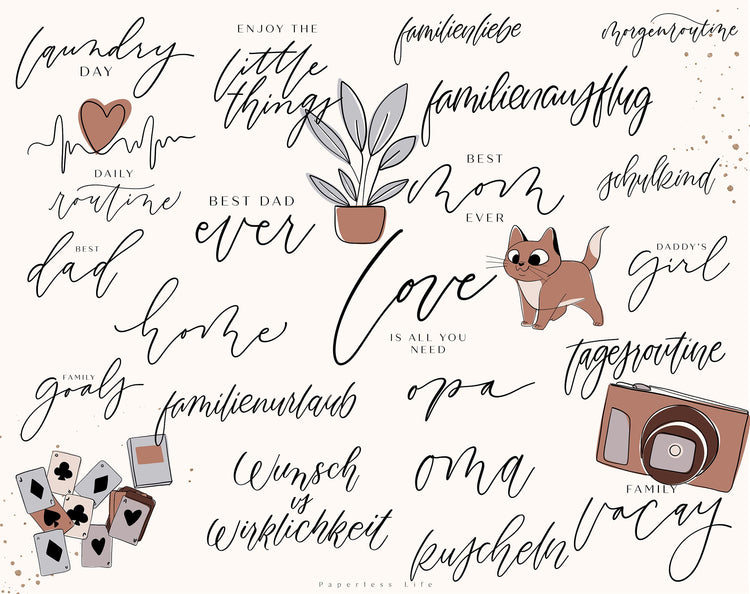 laundry
DAY
ENJOY THE
little
things
familienliebe
morgenroutine
familienausflug
DAILY
routine
BEST DAD
ever
BEST
mom
EVER
schulkind
BEST
dad
DADDY'S
girl
love
IS ALL YOU
NEED
home
tagesroutine
FAMILY
goals
familienurlaub
opa
Wunsch
vs
Wirklichkeit
oma
FAMILY
vacay
kuscheln
Paperless Life